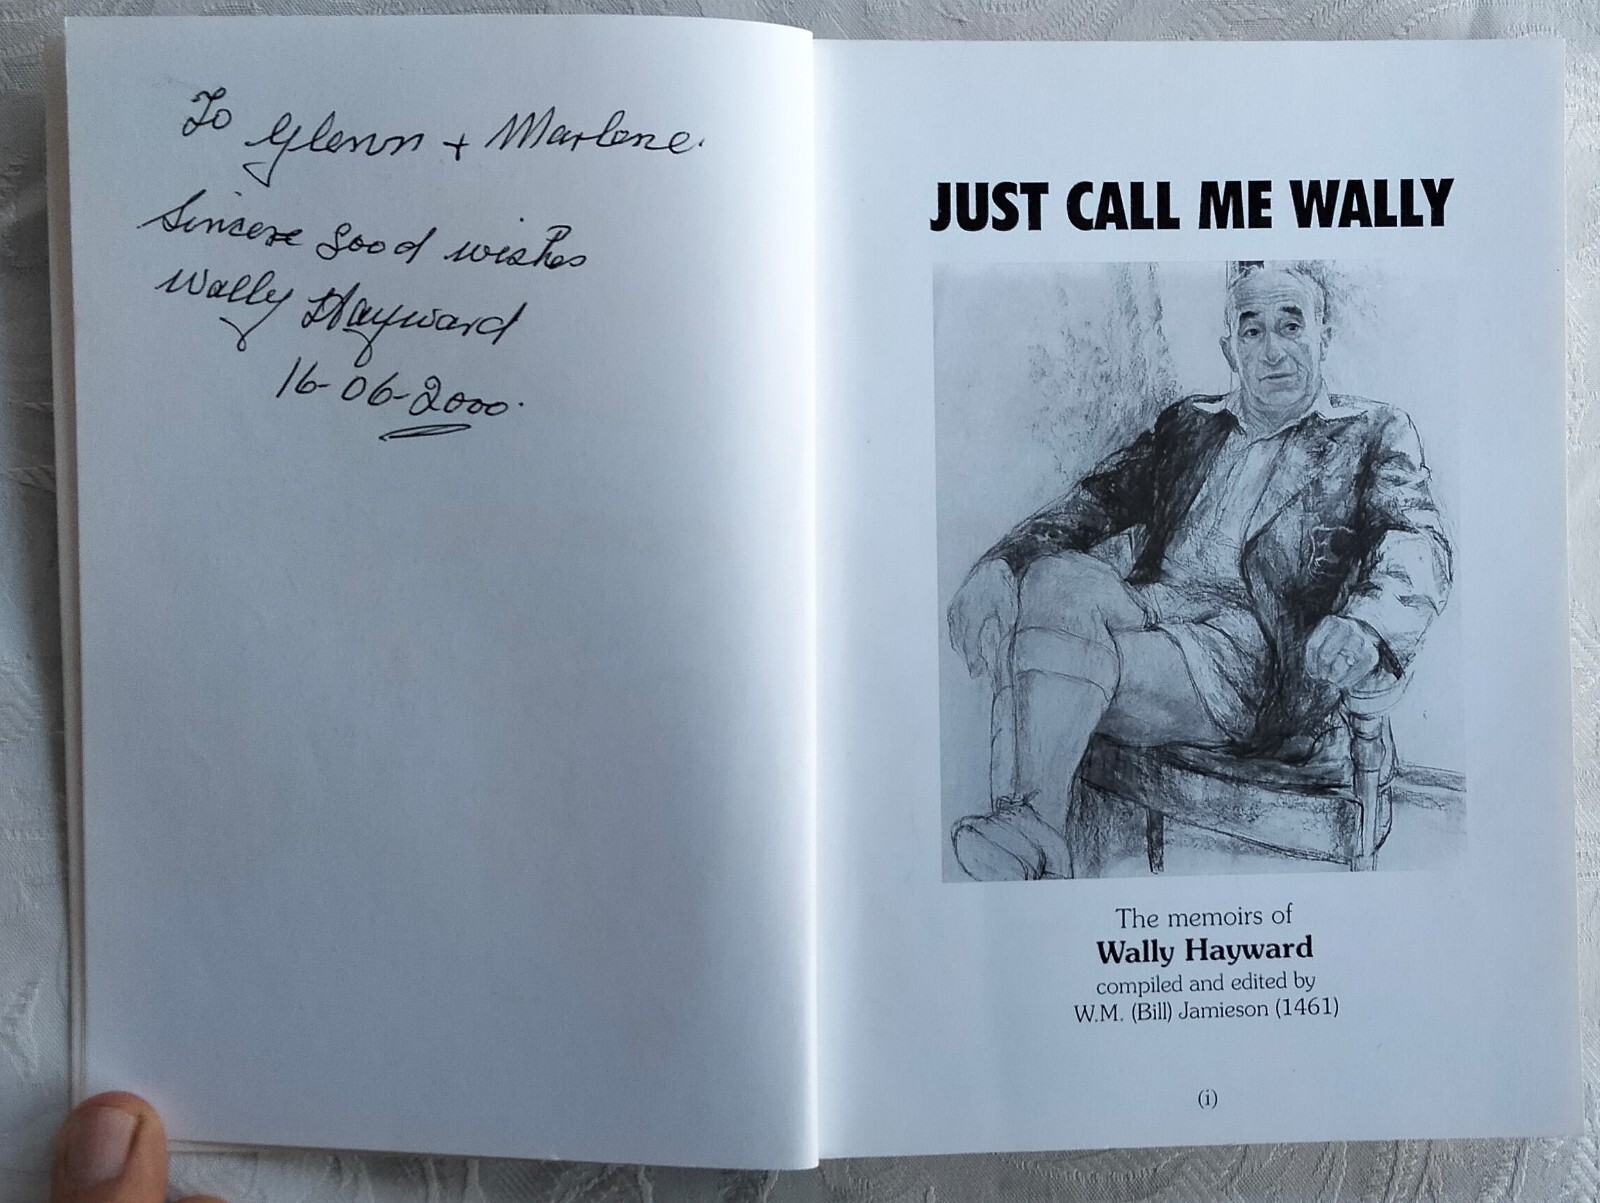 To Glenn + Marlene.
Sincere good wishes
Wally Hayward
16-06-2000.
JUST CALL ME WALLY
The memoirs of
Wally Hayward
compiled and edited by
W.M. (Bill) Jamieson (1461)
(i)